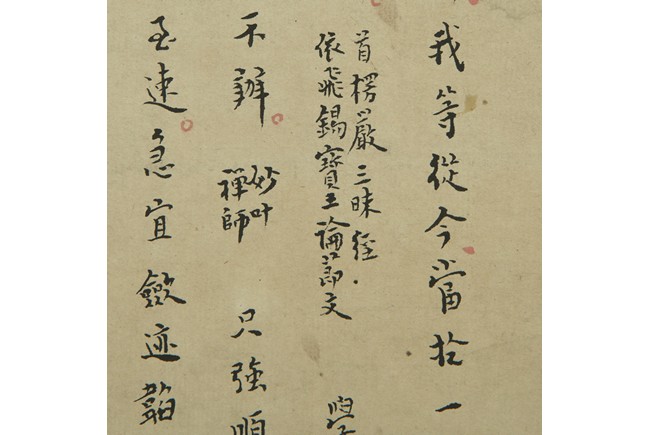 我等從今當於一
首楞嚴三昧經.
依飛錫寶王論節文
不辦
妙叶
禪師
只強順
至速急宜斂迹韜